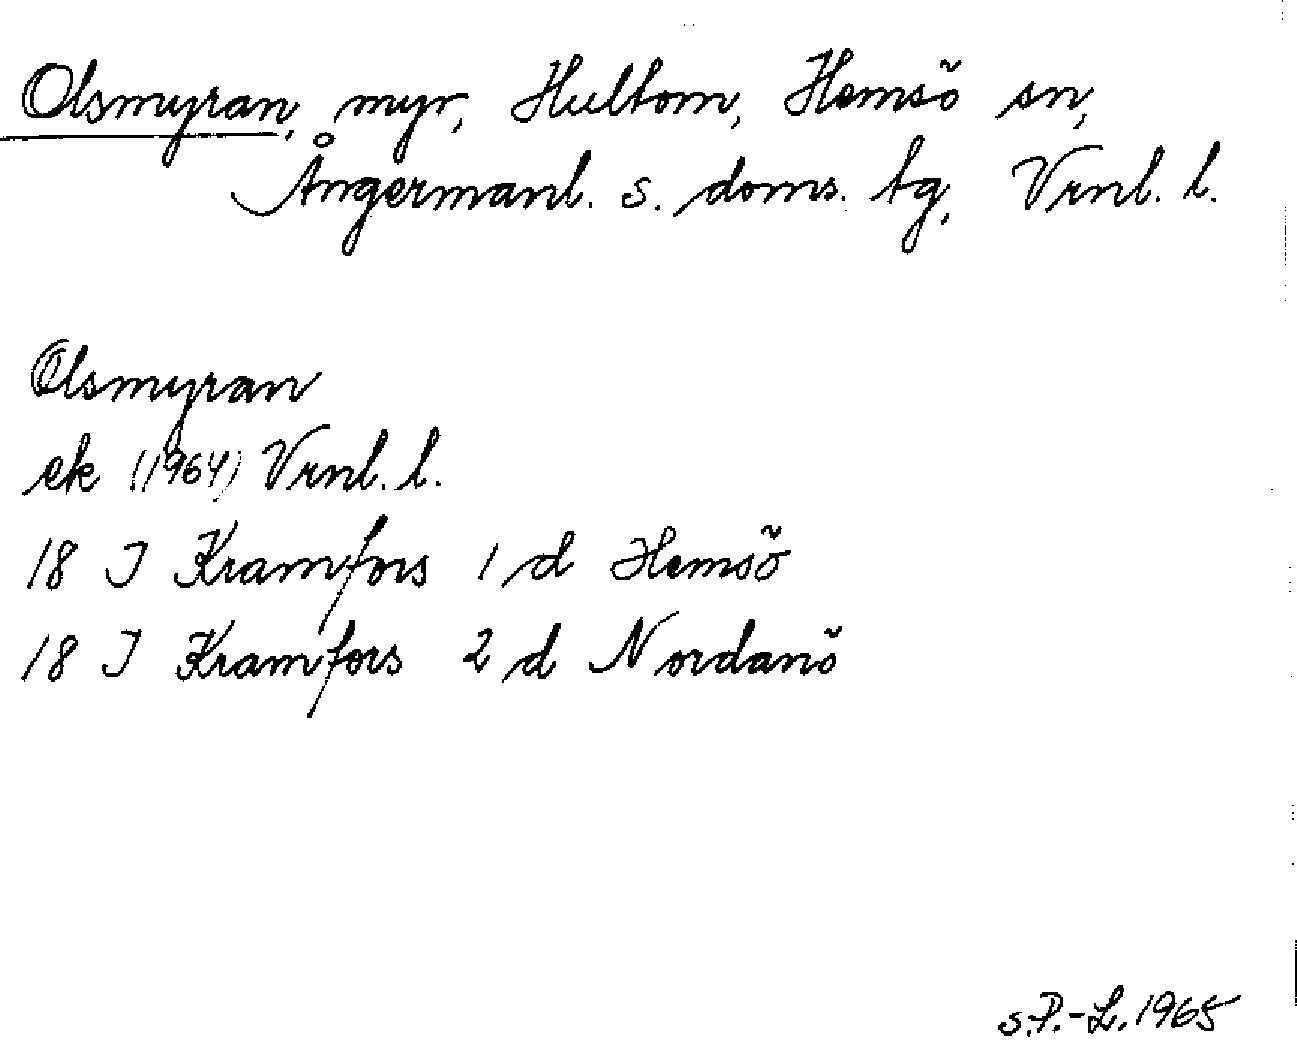 Olsmyran, myr, Hultom, Hemsö sn,
Ångermanl. s. doms. tg, Vrnl. l.
Olsmyran
ek (1964) Vrnl. l.
18 I Kramfors 1 d Hemsö
18 I Kramfors 2 d Nordanö
s.P.-L. 1965